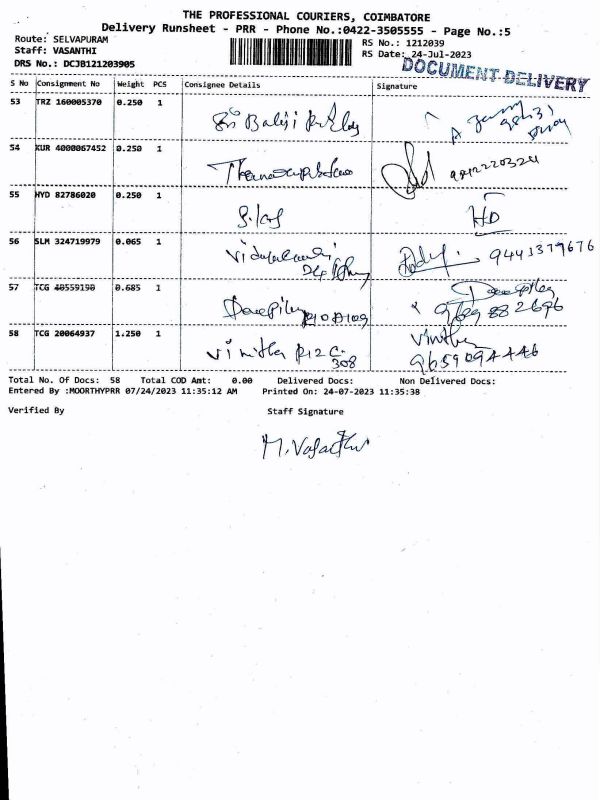 THE PROFESSIONAL COURIERS, COIMBATORE
Delivery Runsheet - PRR - Phone No.:0422-3505555 - Page No.:5
Route: SELVAPURAM
RS No.: 1212039
Staff: VASANTHI
RS Date: 24-Jul-2023
DRS No.: DCJB121203905
DOCUMENT DELIVERY
S No Consignment No Weight PCS Consignee Details Signature
53 TRZ 160005370 0.250 1 Sri Balaji
54 KUR 4000067452 0.250 1
55 HYD 82786020 0.250 1 HD
56 SLM 324719979 0.065 1 9441379676
57 TCG 40559190 0.685 1 Deepika
58 TCG 20064937 1.250 1 Vinitha R12 C 308 Vinitha
9659094446
Total No. Of Docs: 58 Total COD Amt: 0.00 Delivered Docs: Non Delivered Docs:
Entered By :MOORTHYPRR 07/24/2023 11:35:12 AM Printed On: 24-07-2023 11:35:38
Verified By Staff Signature
M. Vasanthi